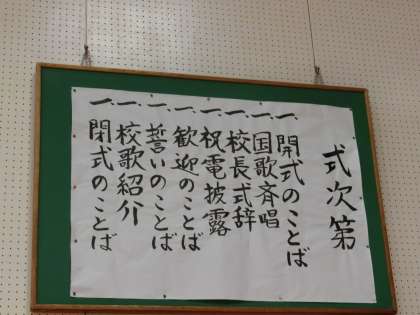 式次第
一、開式のことば
一、国歌斉唱
一、校長式辞
一、祝電披露
一、歓迎のことば
一、誓いのことば
一、校歌紹介
一、閉式のことば